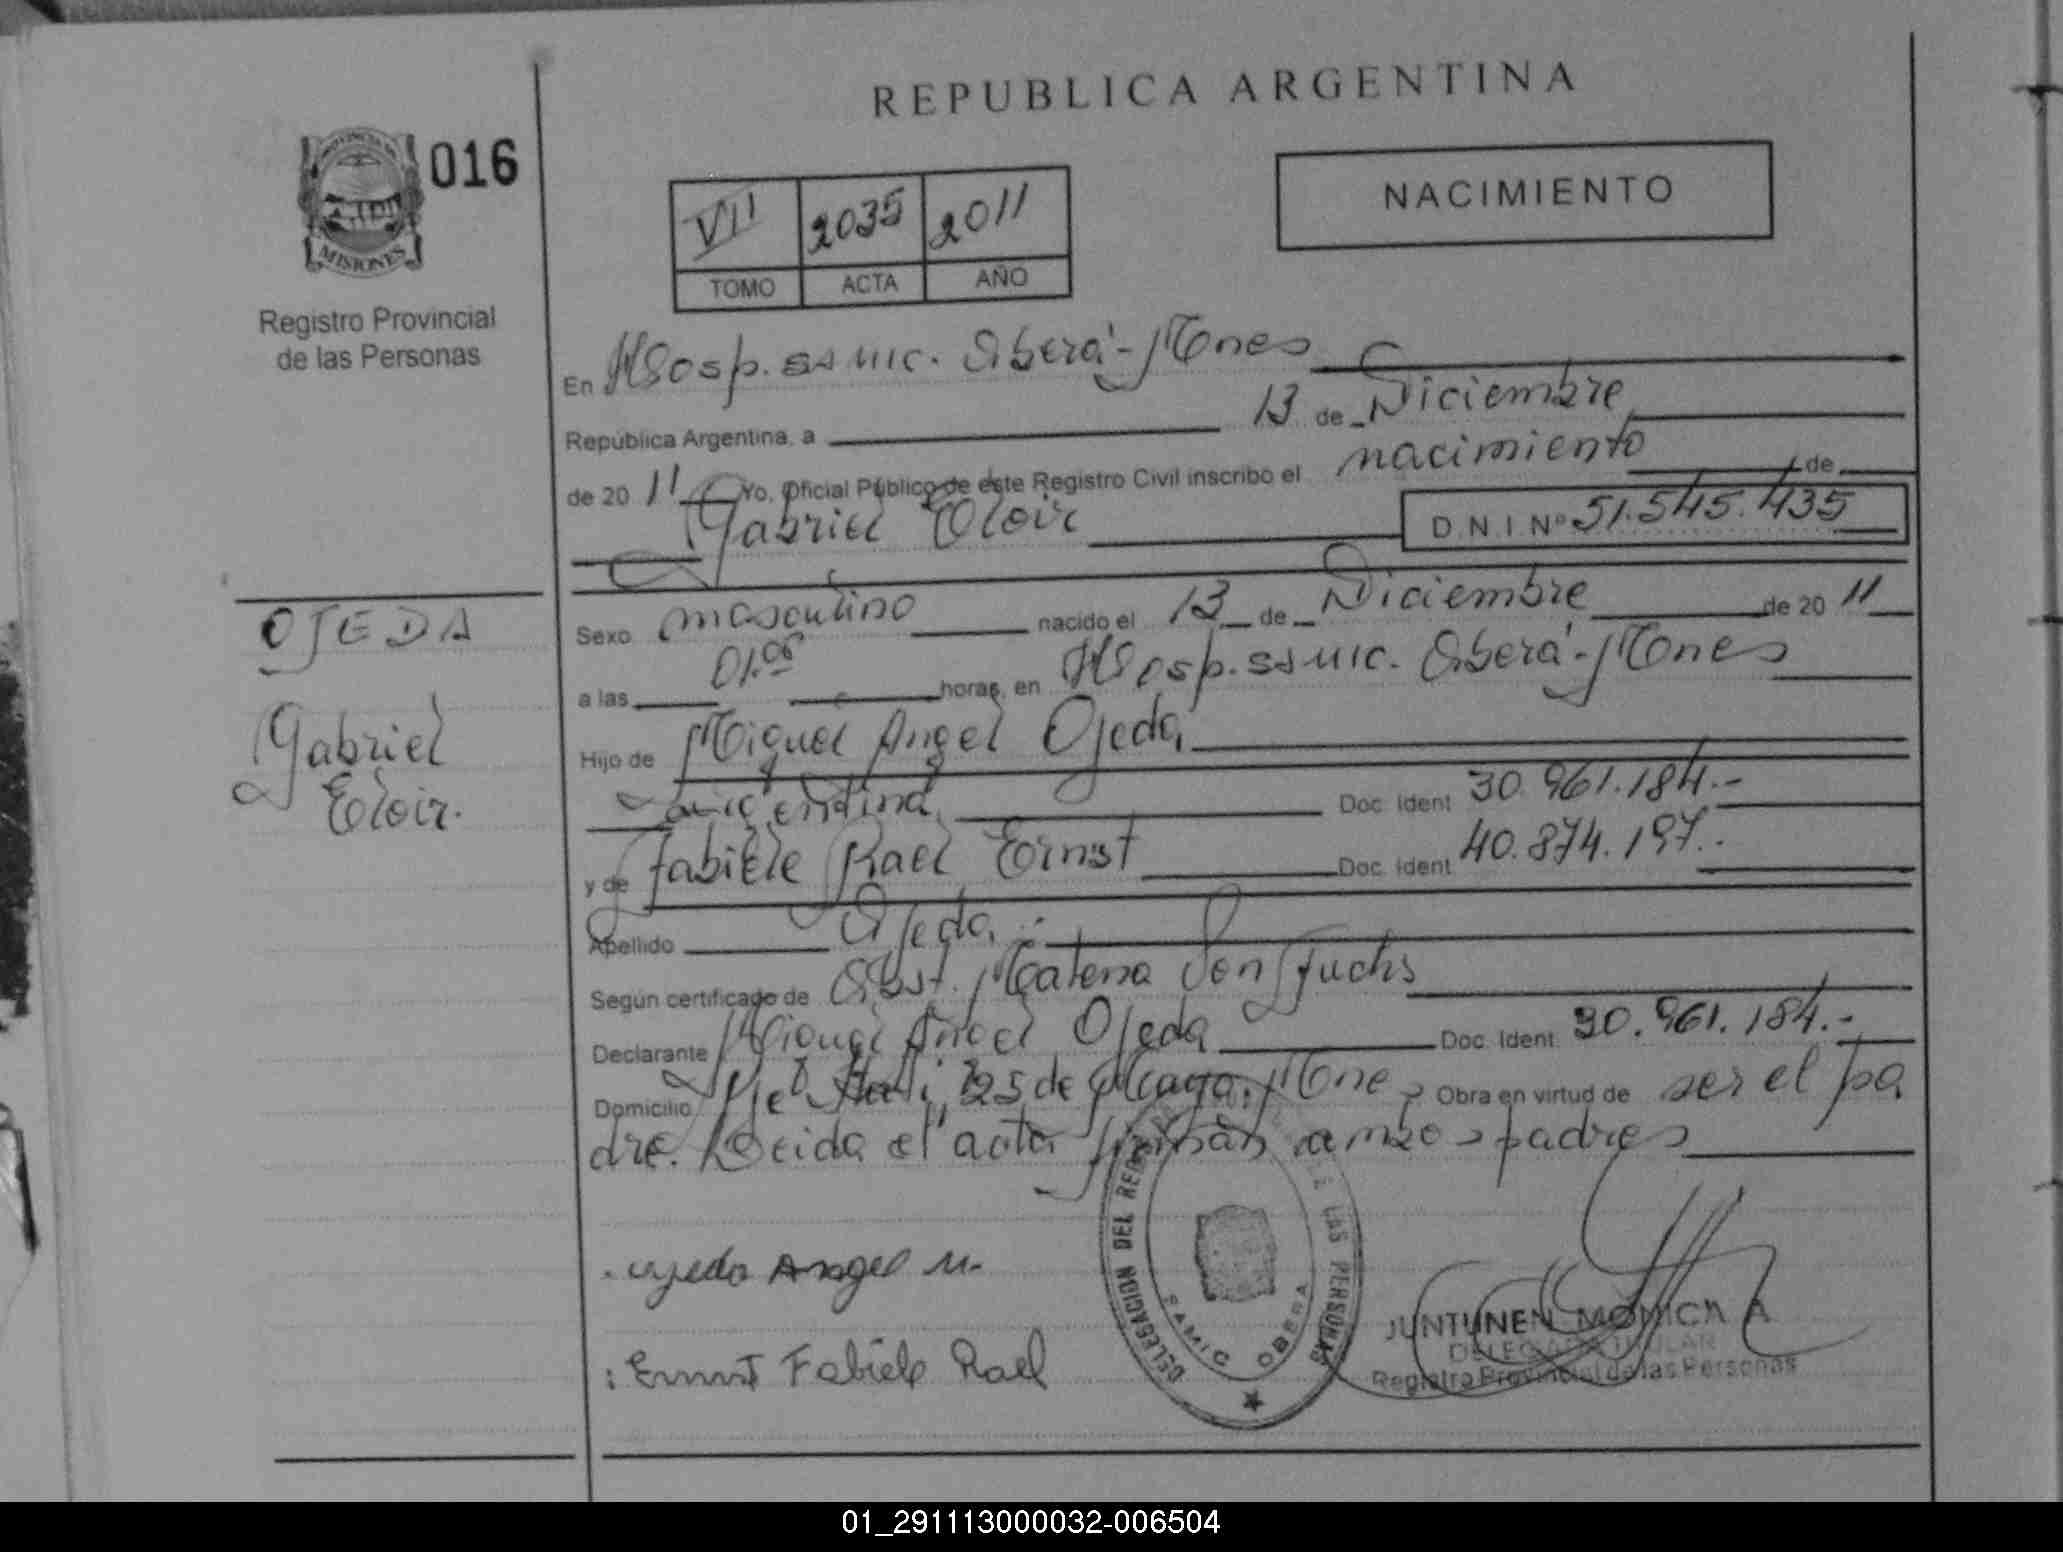 REPUBLICA ARGENTINA
PROVINCIA DE
MISIONES
016
Registro Provincial
de las Personas
NACIMIENTO
VII 2035 2011
TOMO ACTA AÑO
En Hosp. ssmic. Oberá - Mones
República Argentina, a 13 de Diciembre
de 20 11 Yo, Oficial Público de este Registro Civil inscribo el nacimiento de
Gabriel Eloir D.N.I. Nº 51.545.435
OJEDA
Gabriel
Eloir.
Sexo masculino nacido el 13 de Diciembre de 20 11
a las 01.05 horas, en Hosp. ssmic. Oberá - Mones
Hijo de Miguel Angel Ojeda
argentina Doc. Ident 30.961.184.-
y de Fabiele Rael Ernst Doc. Ident 40.874.197.-
Apellido Ojeda.
Según certificado de Obst. Fuchs
Declarante Miguel Angel Ojeda Doc. Ident. 30.961.184.-
Domicilio 25 de Mayo, Mones Obra en virtud de ser el pa
dre. Leida el acta firman ambos padres
Ojeda Angel M.
: Ernst Fabiele Rael
DELEGACION DEL LAS PERSONAS
SAMIC OBERA
JUNTUNEN MONICA A
DELEGADA TITULAR
Registro Provincial de las Personas
01_291113000032-006504